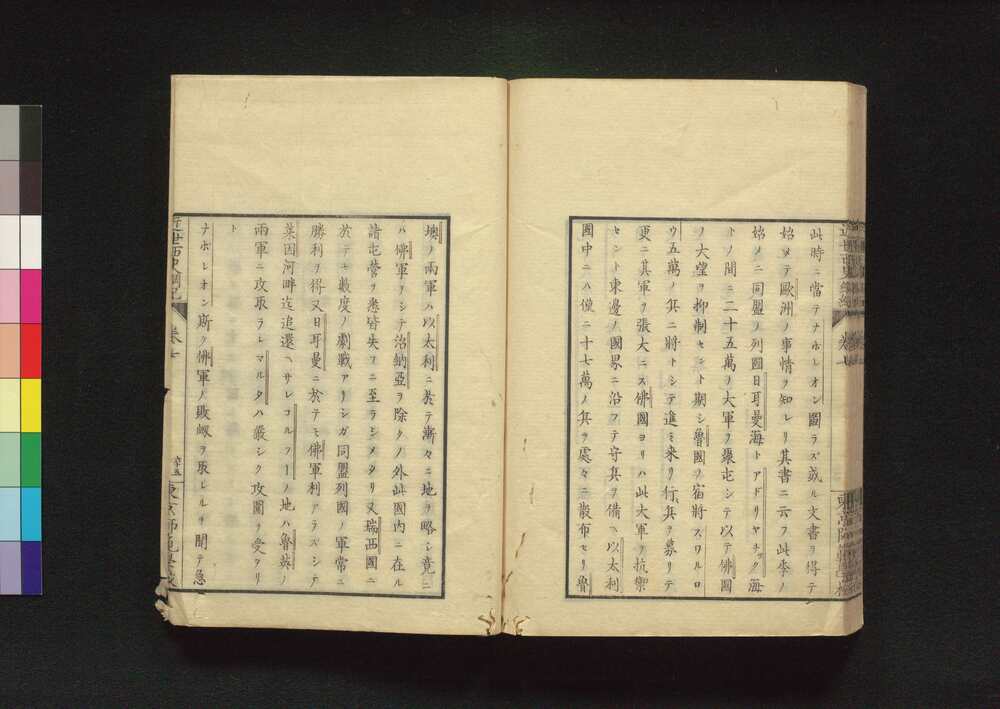 此時ニ當テナホレオン圖ラズ或ル文書ヲ得テ
始メテ歐洲ノ事情ヲ知レリ其書ニ云フ此季ノ
始メニ同盟ノ列國日耳曼海トアドリヤチック海
トノ間ニ二十五萬ノ大軍ヲ張屯シテ以テ佛國
ノ大望ヲ抑制セント期シ魯國ノ宿將スワルロ
ウ五萬ノ兵ニ將トシテ進ミ来リ行兵ヲ募リテ
更ニ其軍ヲ張大ニス佛國ヨリハ此大軍ヲ抗禦
セント東邊ノ國界ニ沿フテ守兵ヲ備へ以太利
國中ニハ僅ニ十七萬ノ兵ヲ處々ニ散布セリ魯
墺ノ兩軍ハ以太利ニ於テ漸々ニ地ヲ略シ竟ニ
ハ佛軍ヲシテ治納亞ヲ除クノ外此國内ニ在ル
諸屯營ヲ悉皆失フニ至ラシメタリ又瑞西國ニ
於テモ數度ノ劇戰アリシガ同盟列國ノ軍常ニ
勝利ヲ得又日耳曼ニ於テモ佛軍利アラズシテ
萊因河畔迄追還ヘサレコルフーノ地ハ魯英ノ
兩軍ニ攻取ラレマルタハ嚴シク攻圍ヲ受タリ
ト
ナホレオン斯ク佛軍ノ敗衂ヲ取レルヲ聞テ急
近世西史綱紀
卷七